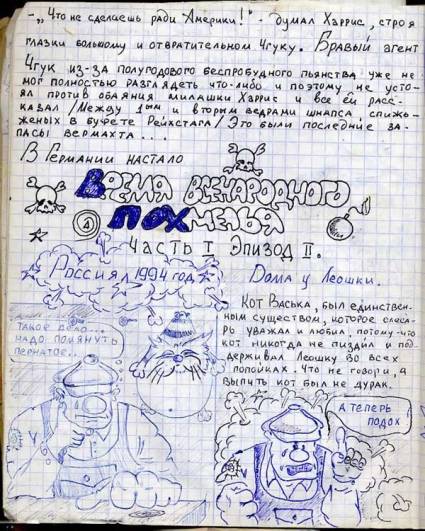 -„Что не сделаешь ради Америки!" - думал Харрис, строя
глазки большому и отвратительном Чгуку. Бравый агент
Чгук из-за полугодового беспробудного пьянства уже не
мог полностью разглядеть что-либо и поэтому не усто-
ял против обаяния милашки Харрис и все ей расс-
казал /Между 1ым и вторым ведрами шнапса, спиже-
женых в буфете Рейхстага/ Это были последние за-
пасы вермахта...
В Германии настало
Время всенародного
похмелья
Часть I Эпизод II.
Россия, 1994 год
Дома у Леошки.
Такое дело...
надо помянуть
пернатое...
Кот Васька, был единствен-
ным существом, которое слеса-
рь уважал и любил, потому-что
кот никогда не пиздил и под-
держивал Леошку во всех
попойках. Что не говори, а
выпить кот был не дурак.
А теперь
подох